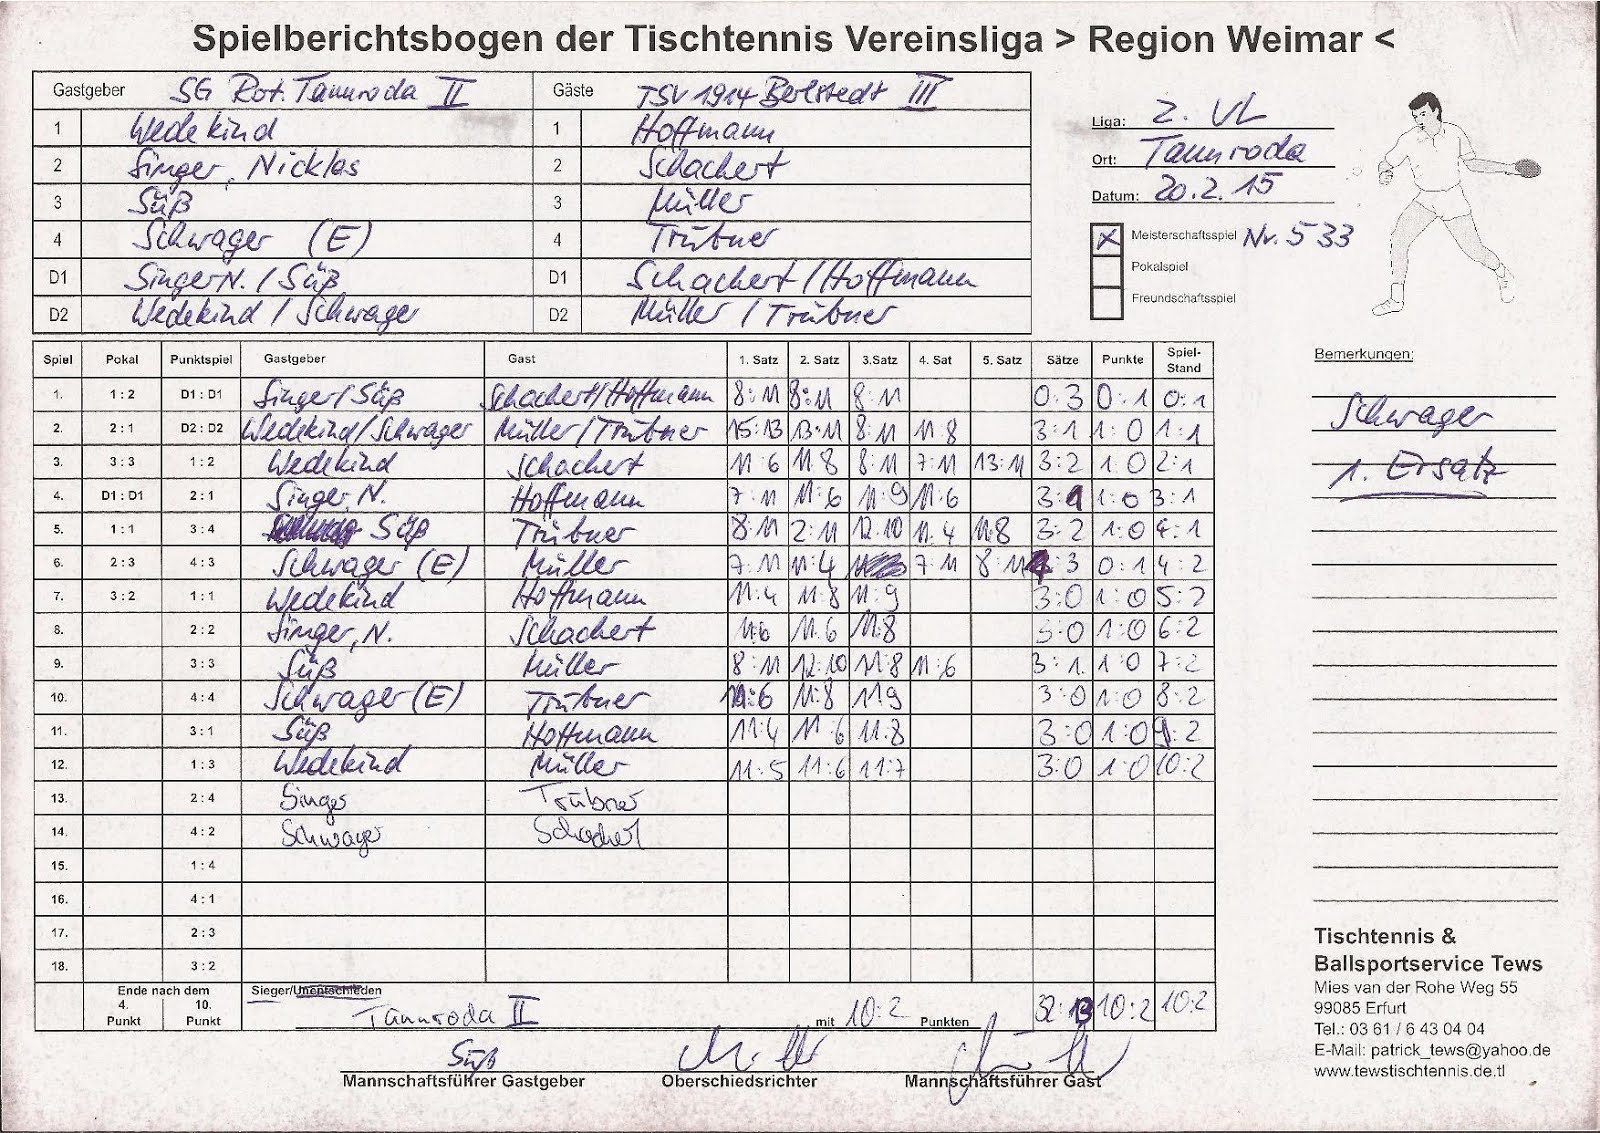 Spielberichtsbogen der Tischtennis Vereinsliga > Region Weimar <
Gastgeber SG Rot. Tannroda II Gäste TSV 1914 Berlstedt III
1 Wedekind 1 Hoffmann
2 Singer, Nicklas 2 Schachert
3 Süß 3 Müller
4 Schwager (E) 4 Trübner
D1 Singer N. / Süß D1 Schachert / Hoffmann
D2 Wedekind / Schwager D2 Müller / Trübner
Liga: 2. VL
Ort: Tannroda
Datum: 20.2.15
x Meisterschaftsspiel Nr. 533
Pokalspiel
Freundschaftsspiel
Spiel Pokal Punktspiel Gastgeber Gast 1. Satz 2. Satz 3.Satz 4. Sat 5. Satz Sätze Punkte Spiel-Stand
1. 1 : 2 D1 : D1 Singer/Süß Schachert/Hoffmann 8:11 8:11 8:11 0:3 0:1 0:1
2. 2 : 1 D2 : D2 Wedekind/Schwager Müller/Trübner 15:13 13:11 8:11 11:8 3:1 1:0 1:1
3. 3 : 3 1 : 2 Wedekind Schachert 11:6 11:8 8:11 7:11 13:11 3:2 1:0 2:1
4. D1 : D1 2 : 1 Singer, N. Hoffmann 7:11 11:6 11:9 11:6 3:1 1:0 3:1
5. 1 : 1 3 : 4 Süß Trübner 8:11 2:11 12:10 11:4 11:8 3:2 1:0 4:1
6. 2 : 3 4 : 3 Schwager (E) Müller 7:11 11:4 7:11 8:11 :3 0:1 4:2
7. 3 : 2 1 : 1 Wedekind Hoffmann 11:4 11:8 11:9 3:0 1:0 5:2
8. 2 : 2 Singer, N. Schachert 11:6 11:6 11:8 3:0 1:0 6:2
9. 3 : 3 Süß Müller 8:11 12:10 11:8 11:6 3:1 1:0 7:2
10. 4 : 4 Schwager (E) Trübner 11:6 11:8 11:9 3:0 1:0 8:2
11. 3 : 1 Süß Hoffmann 11:4 11:6 11:8 3:0 1:0 9:2
12. 1 : 3 Wedekind Müller 11:5 11:6 11:7 3:0 1:0 10:2
13. 2 : 4 Singer Trübner
14. 4 : 2 Schwager Schachert
15. 1 : 4
16. 4 : 1
17. 2 : 3
18. 3 : 2
Ende nach dem
4. Punkt 10. Punkt
Sieger/Unentschieden
Tannroda II mit 10:2 Punkten 32:13 10:2 10:2
Süß
Mannschaftsführer Gastgeber Oberschiedsrichter Mannschaftsführer Gast
Bemerkungen:
Schwager
1. Ersatz
Tischtennis &
Ballsportservice Tews
Mies van der Rohe Weg 55
99085 Erfurt
Tel.: 03 61 / 6 43 04 04
E-Mail: patrick_tews@yahoo.de
www.tewstischtennis.de.tl